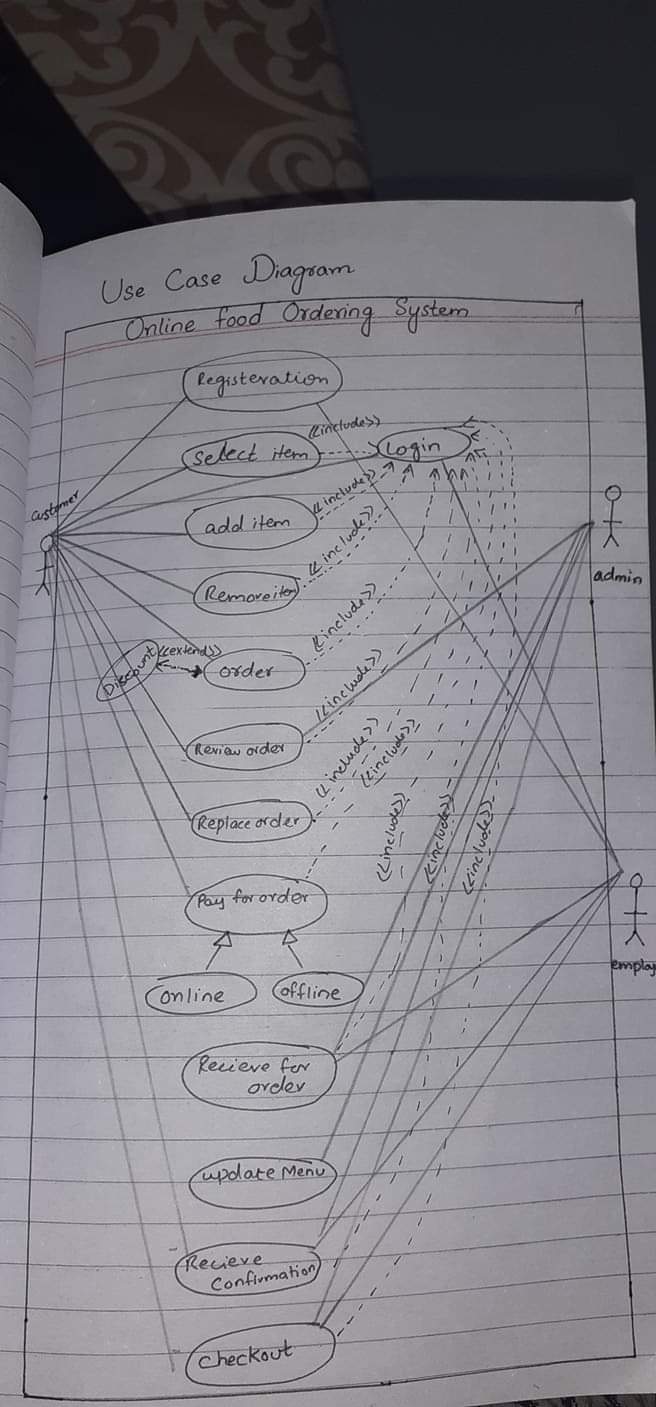 Use Case Diagram
Online food Ordering System
Registeration
<<include>>
Select item
Login
customer
<<include>>
add item
admin
<<include>>
Remove item
<<include>>
Discount
<<extend>>
order
<<include>>
Review order
<<include>>
<<include>>
Replace order
<<include>>
<<include>>
<<include>>
Pay for order
online
offline
employ
Recieve for
order
update Menu
Recieve
Confirmation
checkout